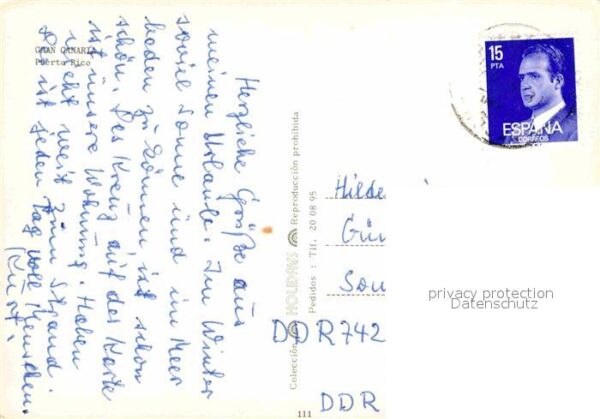 GRAN CANARIA
Puerto Rico
Herzliche Grüße aus
meinem Urlaub. Im Winter
soviel Sonne und im Meer
baden zu können ist schon
schön. Das Kreuz auf der Karte
ist unsere Wohnung. Haben
nicht weit zum Strand.
Der ist jeden Tag voll Menschen.
Kurt.
Colección HOLIDAYS Reproducción prohibida
Pedidos : Tlf. 20 08 95
111
15
PTA
ESPAÑA
CORREOS
Hilde
Gün
Son
DDR 742
DDR
privacy protection
Datenschutz